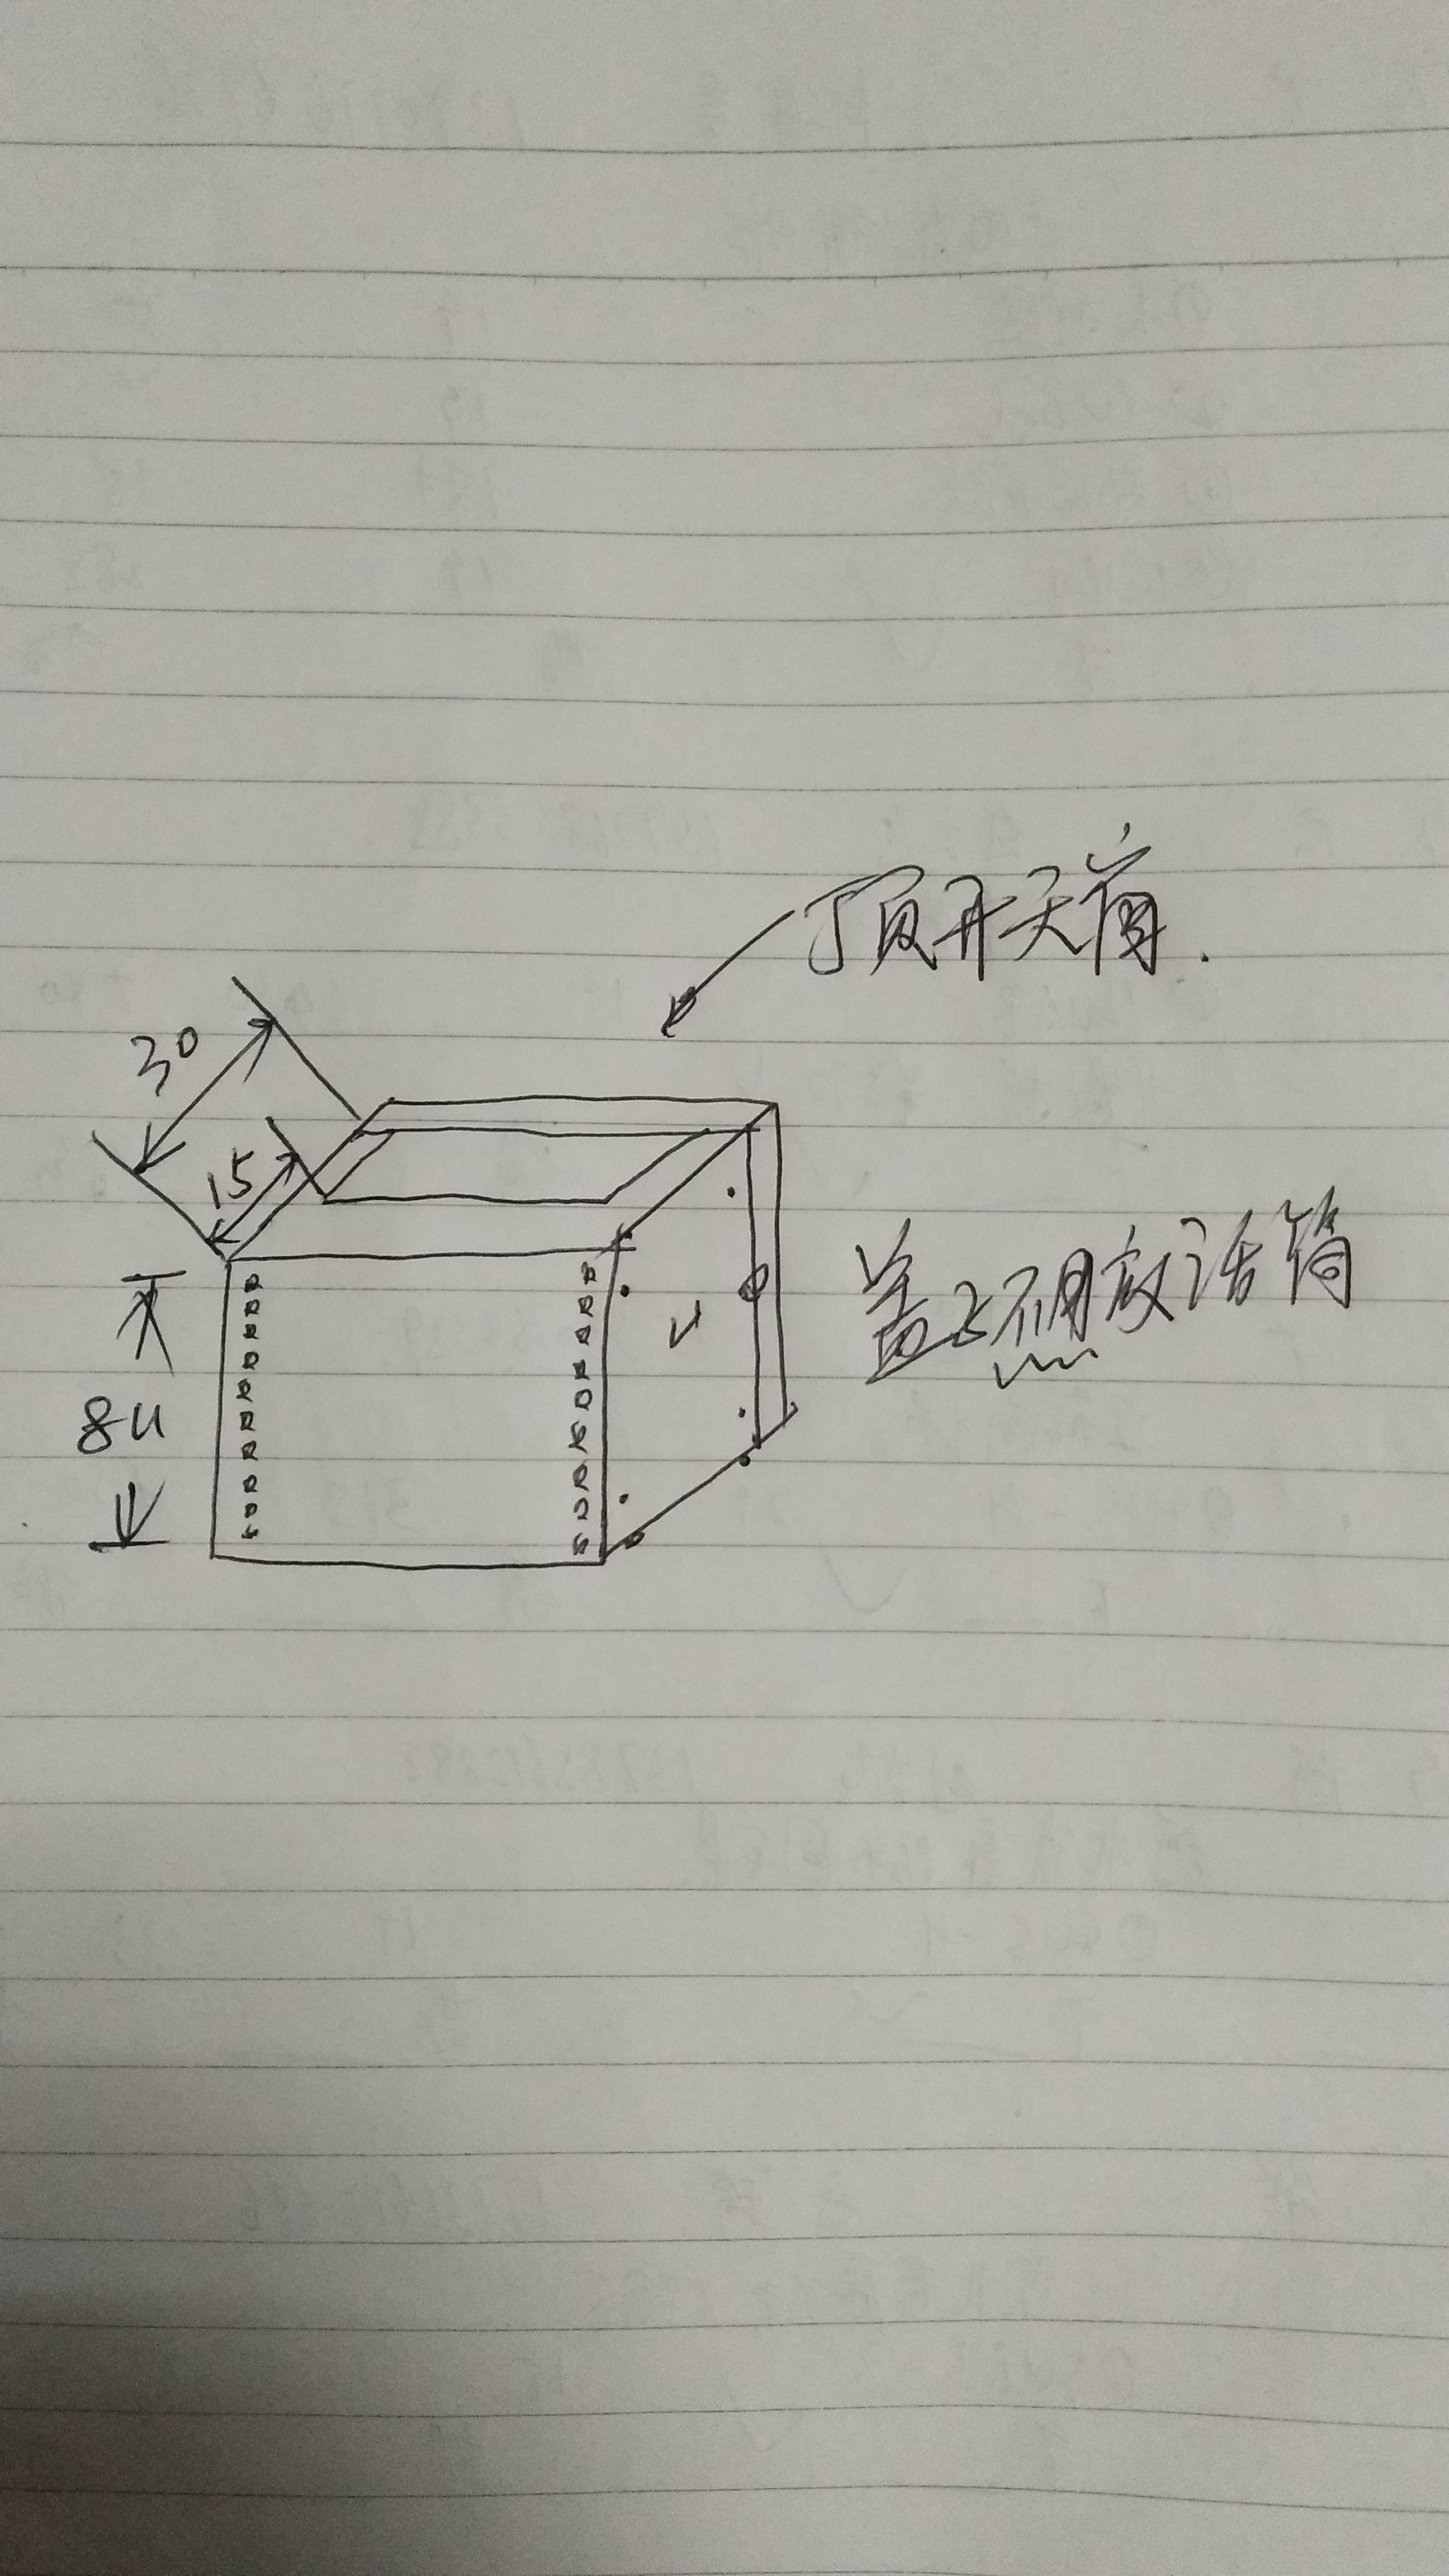 顶开天窗.
30
15
盖上不用放话筒
8U